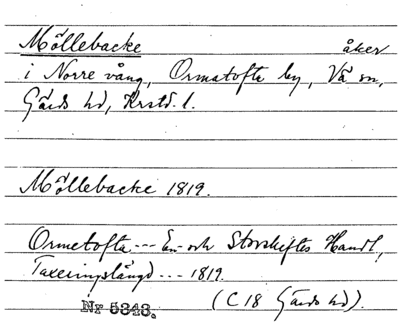 Möllebacke åker
i Norre vång, Ormatofta by, Vä sn,
Gärds hd, Krstd. l.
Möllebacke 1819.
Ormetofta --- En- och Storskiftes Handl.,
Taxeringslängd --- 1819.
Nr 5343. (C 18 Gärds hd).